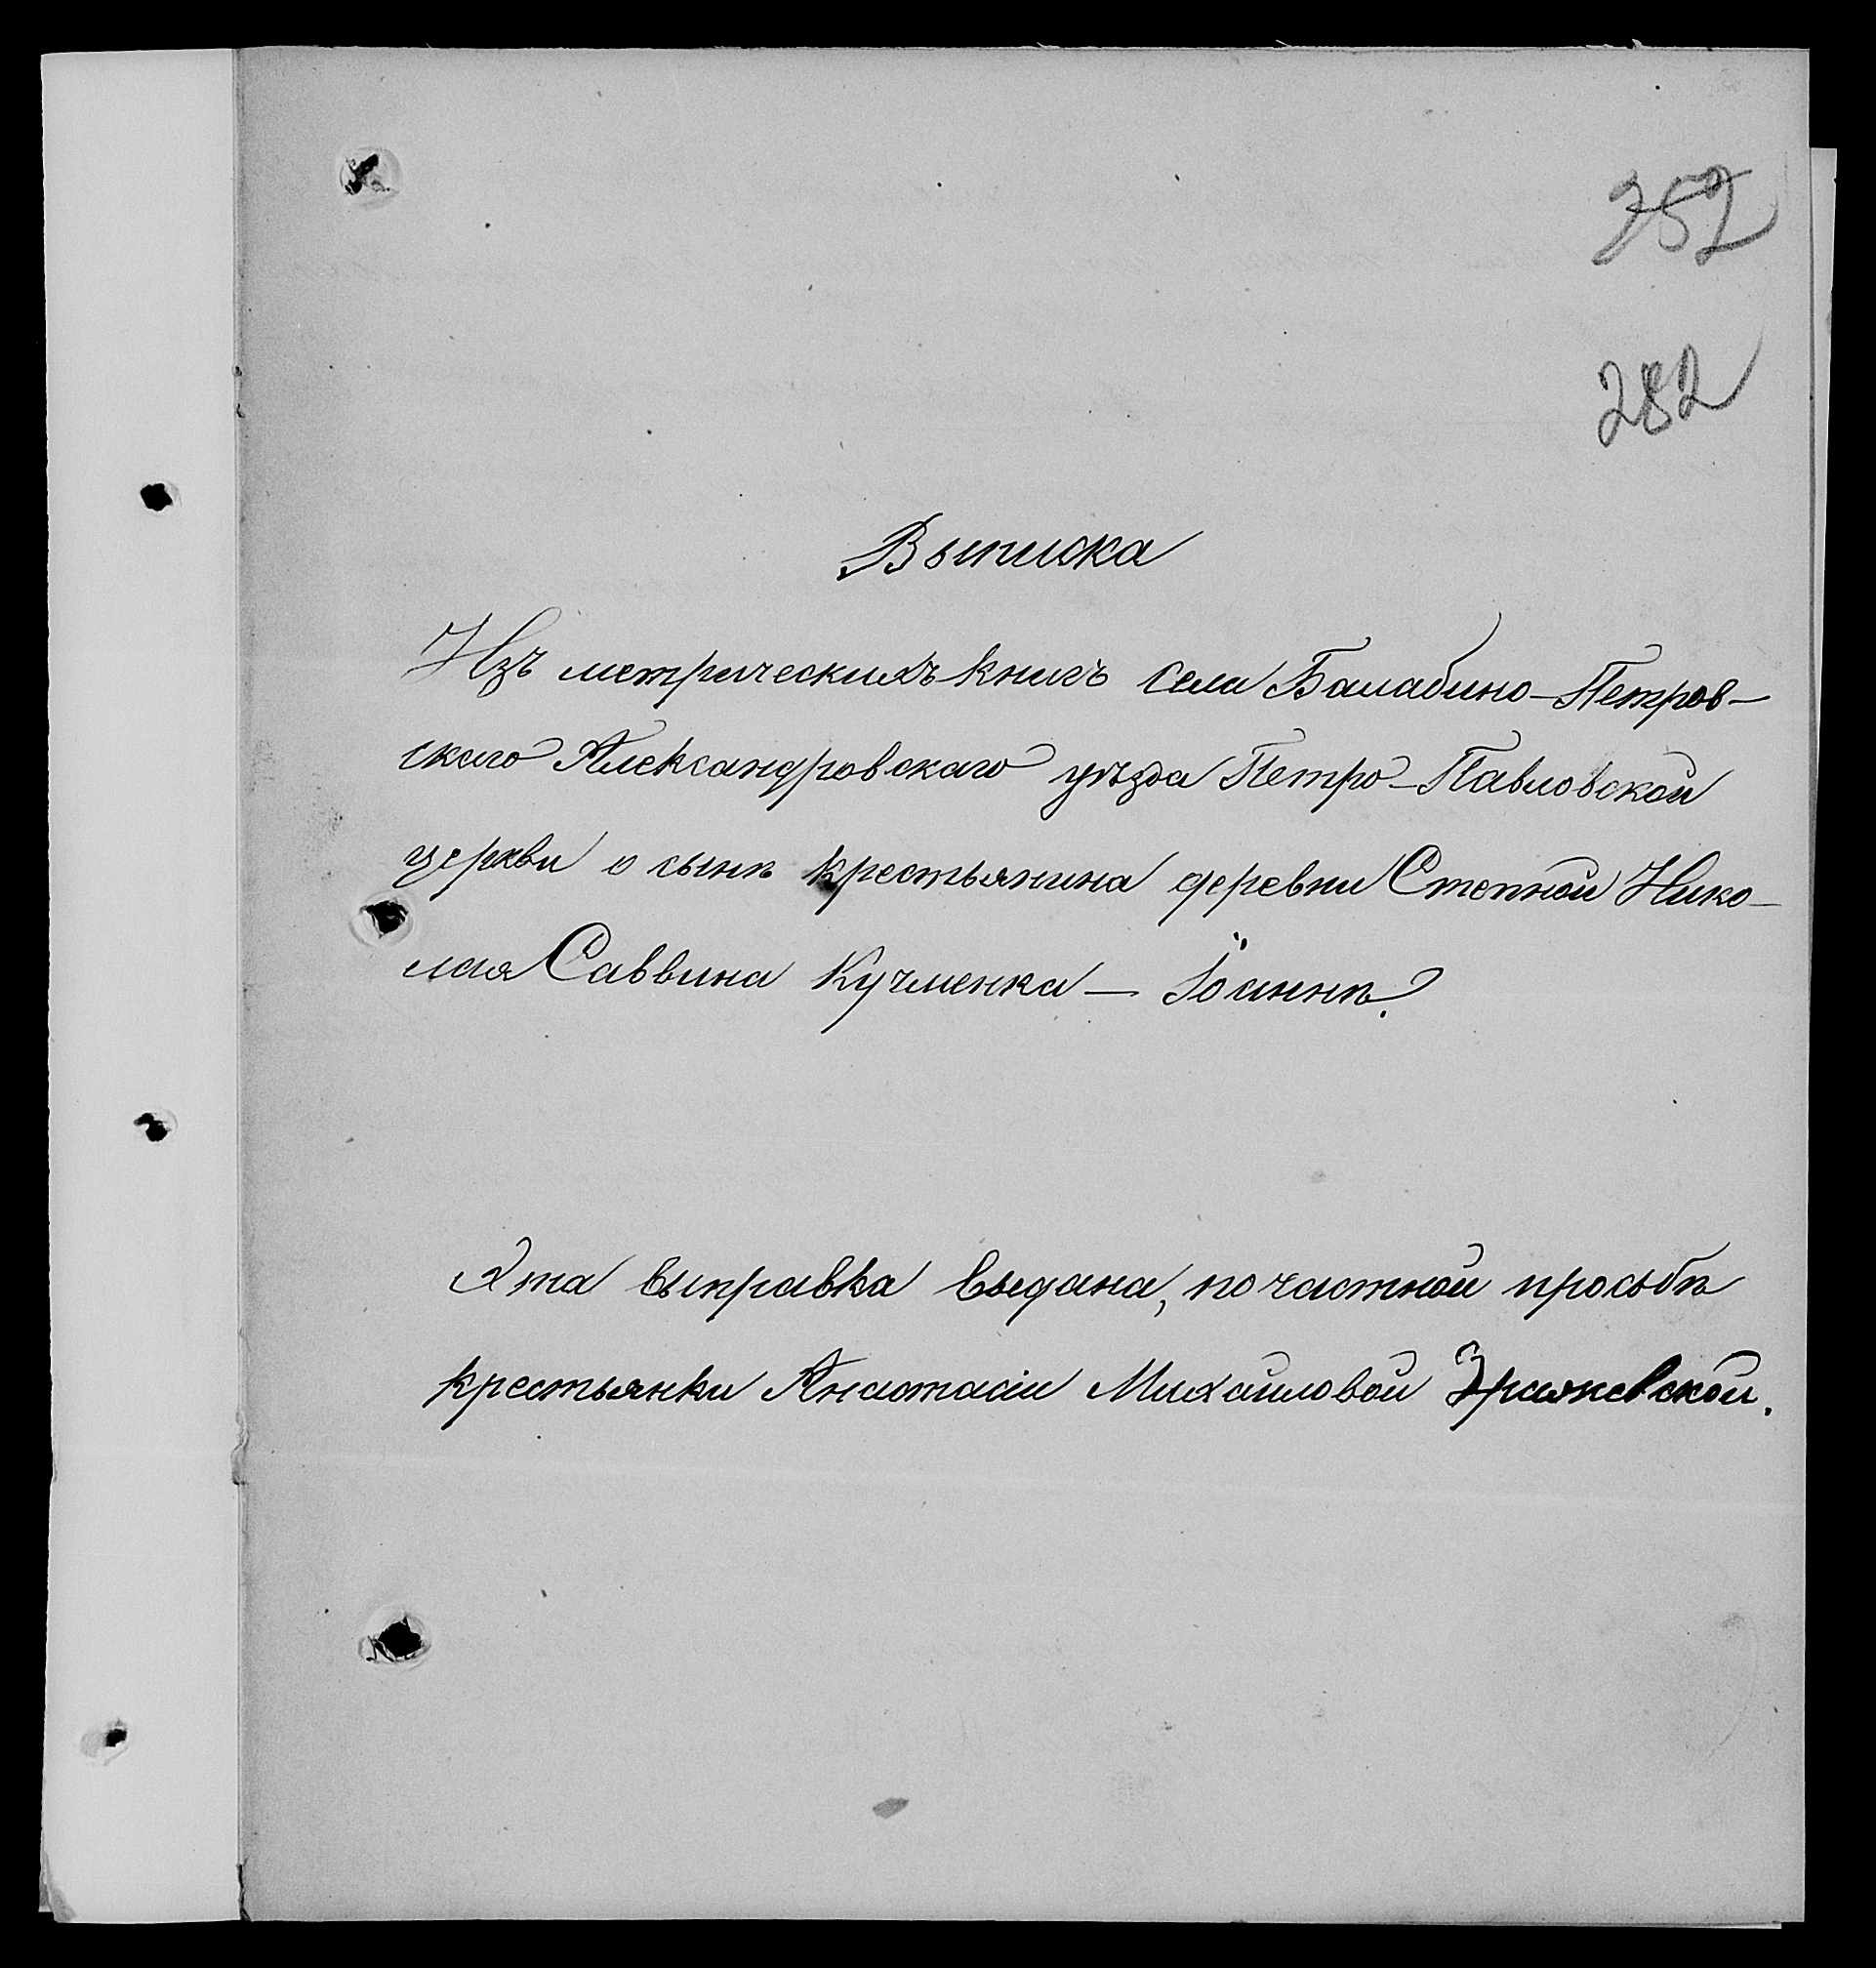 352
282
Выписка
Изъ метрическихъ книгъ села Балабино-Петров-
скаго Александровскаго уѣзда Петро-Павловской
церкви о сынѣ крестьянина деревни Степной Нико-
лая Саввина Кучменка — Іоаннѣ.
Эта выправка выдана, по частной просьбѣ
крестьянки Анастасіи Михайловой